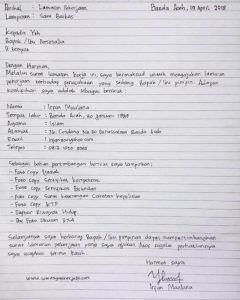 Perihal : Lamaran Pekerjaan Banda Aceh, 09 April 2018
Lampiran : Satu Berkas
Kepada Yth
Bapak / Ibu Perusahaan
di tempat
Dengan Hormat,
Melalui surat lamaran kerja ini, saya bermaksud untuk mengajukan lamaran
pekerjaan terhadap perusahaan yang sedang Bapak / Ibu pimpin. Adapun
saya adalah sebagai berikut :
Nama : Irpan Maulana
Tempat lahir : Banda Aceh, 20 Januari
Agama : Islam
Alamat : Jln. Cendana No 20 Darussalam Banda Aceh
Email :
Telpon :
Sebagai bahan pertimbangan berikut saya lampirkan :
- Foto copy Ijazah
- Foto copy Sertifikat
- Foto copy Sertifikat
- Foto copy Surat Keterangan Catatan Kepolisian
- Foto copy KTP
- Daftar Riwayat Hidup
- Pas Foto Ukuran 3x4
Selanjutnya saya berharap Bapak / Ibu pimpinan dapat mempertimbangkan
surat lamaran pekerjaan yang saya ajukan. Atas segala perhatiannya
saya ucapkan terima kasih.
Hormat saya
Irpan Maulana